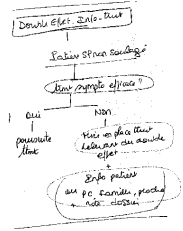 Double Effet. Info. Trait
Patient SP non soulagé
Trmt sympto efficace ?
Oui
Non
poursuite
Trmt
Mise en place trmt
relevant du double
effet
Info patient
ou PC, famille, proche
+ note dossier